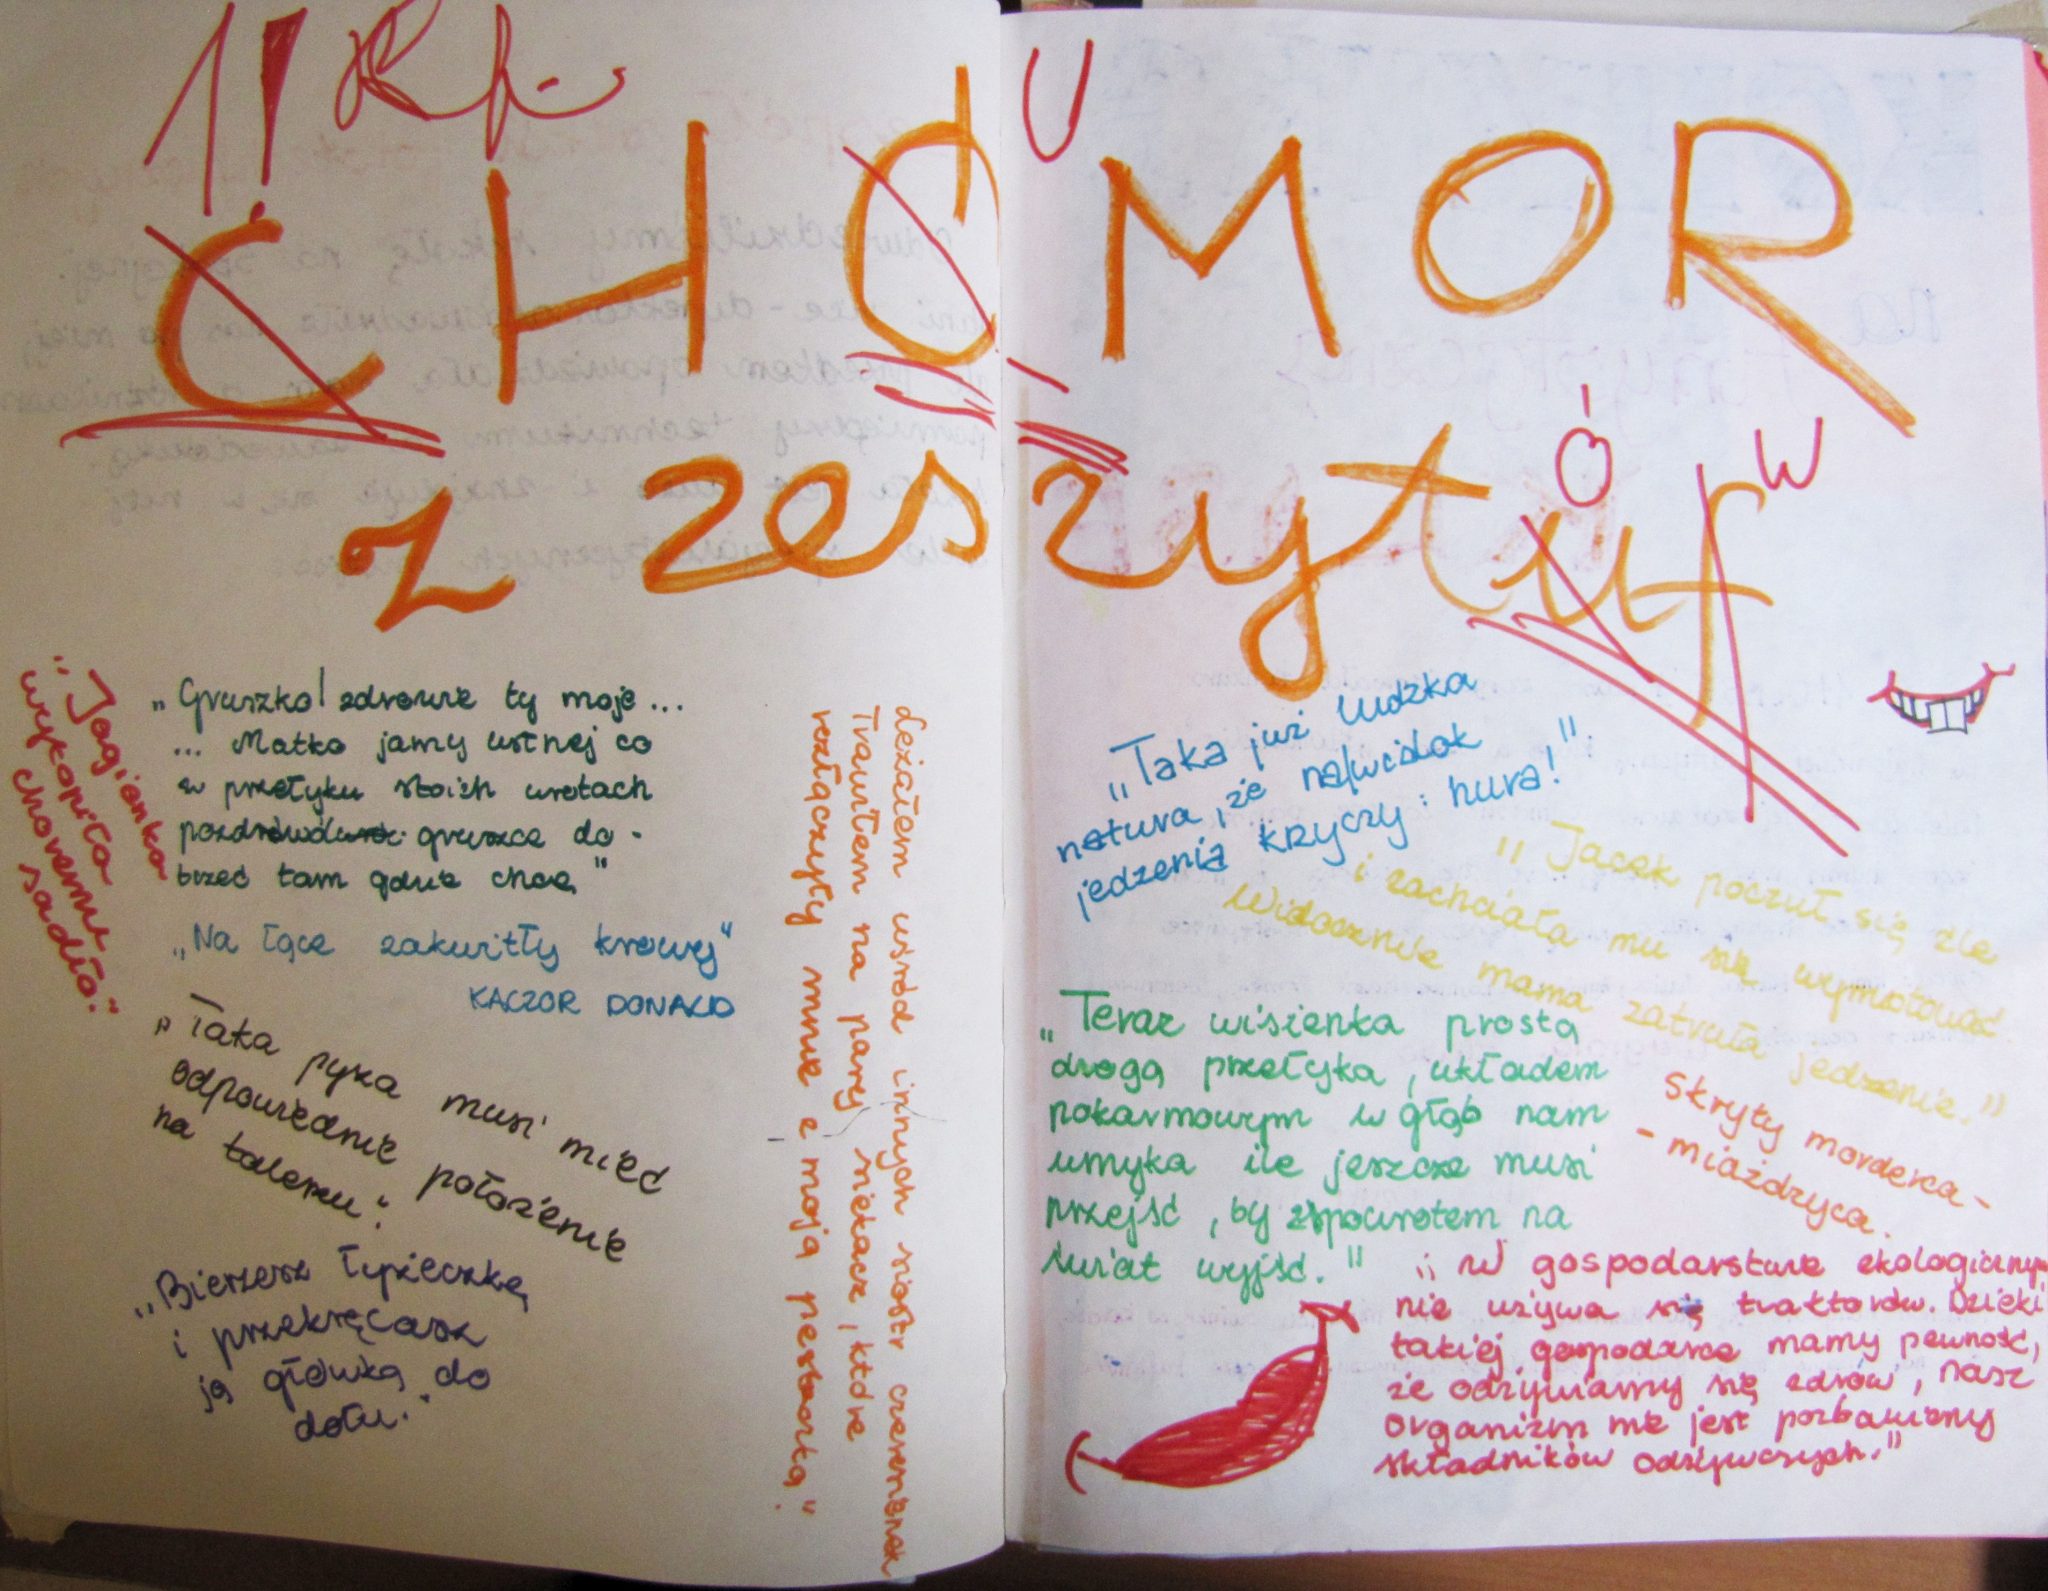 U
CHÓMOR
Ó W
z zeszytuf
"Jagienka
wykopiła
choremu
sadło."
"Gruszko! zdrowie ty moje...
... Matko jamy ustnej co
w przełyku stoisz wrotach
gruszce do-
brzeć tam gdzie chcę"
"Na łące zakwitły krowy"
KACZOR DONALD
"Taka pyza musi mieć
odpowiednie położenie
na talerzu."
"Bierzesz łyżeczkę
i przekręcasz
ją główką do
dołu."
Leżałem wśród innych sióstr czereśniaek
Trawiłem na parey siekacz, które
rozłączyły mnie z moją pestoczką"
"Taka już ludzka
natura, że na widok
jedzenia krzyczy: hura!"
"Jacek poczuł się źle
i zachciało mu się wymiotować
Widocznie mama zatruła jedzenie."
"Teraz wisienka prostą
drogą przełyka, układem
pokarmowym w głąb nam
umyka ile jeszcze musi
przejść, by zpowrotem na
świat wyjść."
Skryty morderca-
-miażdżyca.
"W gospodarstwie ekologicznym
nie używa się traktorów. Dzięki
takiej gospodarce mamy pewność,
że odżywiamy się zdrów, nasz
organizm nie jest pozbawiony
składników odżywczych."